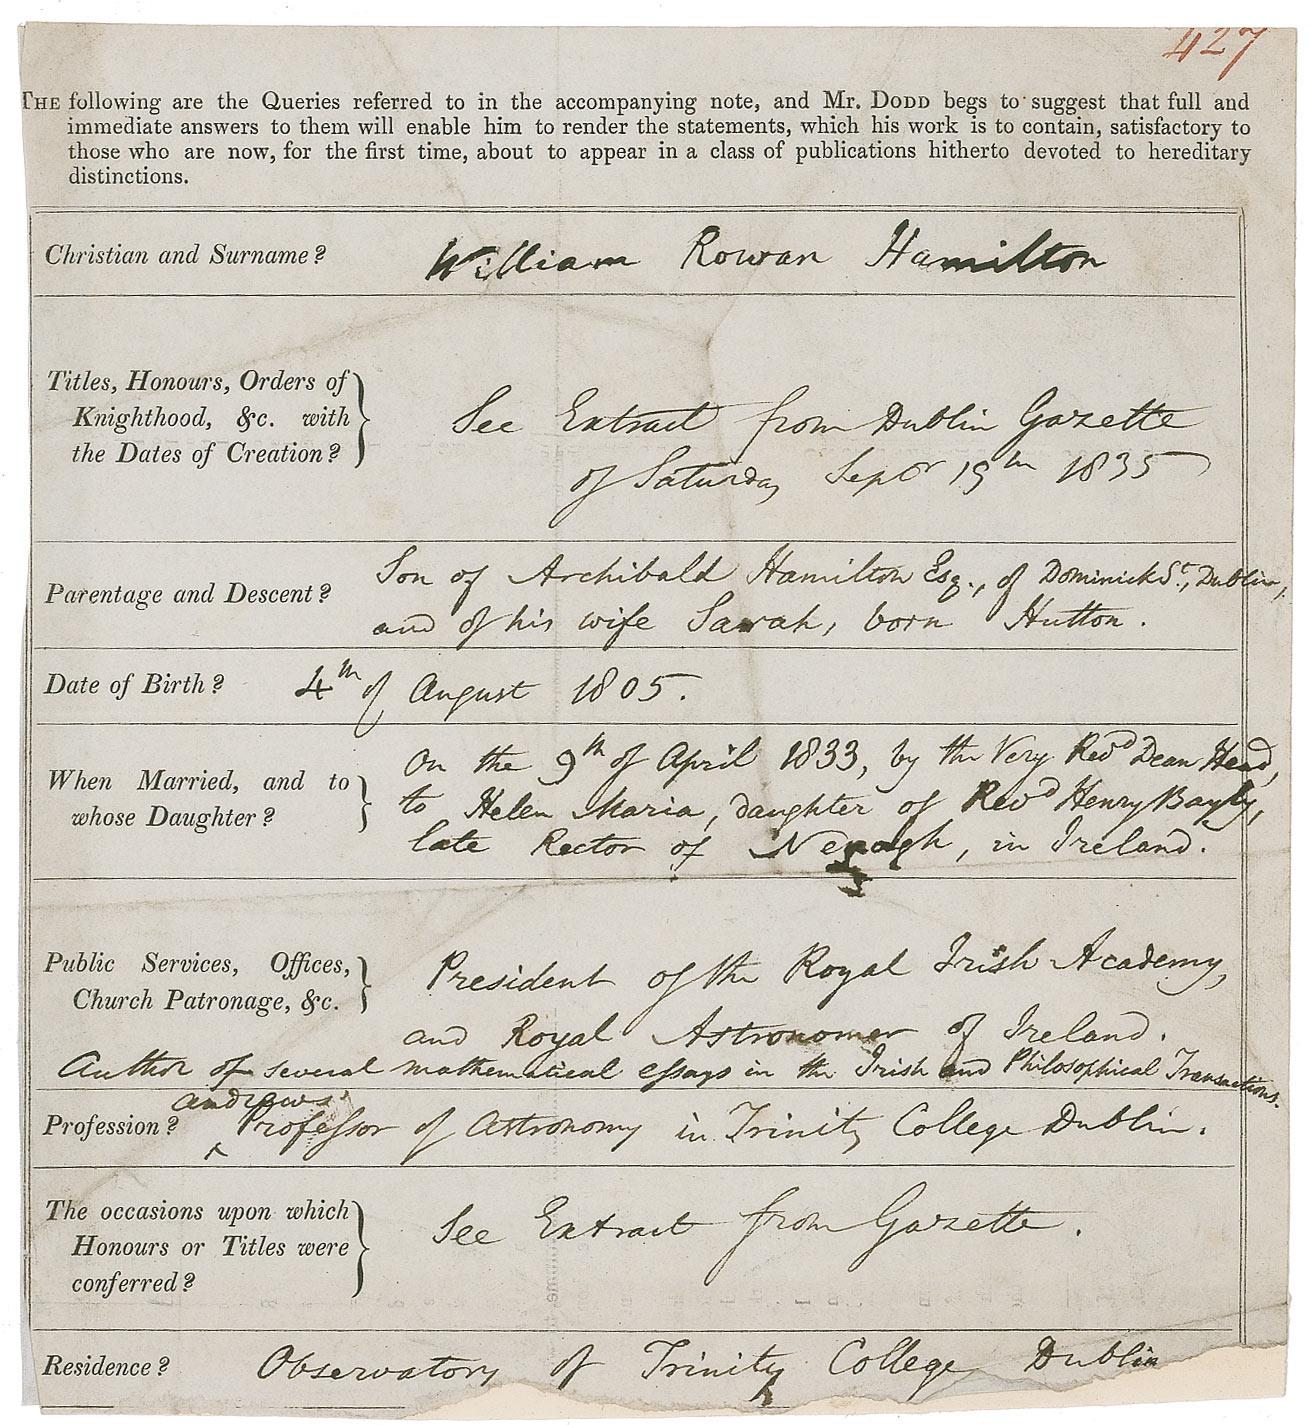 427
THE following are the Queries referred to in the accompanying note, and Mr. DODD begs to suggest that full and
immediate answers to them will enable him to render the statements, which his work is to contain, satisfactory to
those who are now, for the first time, about to appear in a class of publications hitherto devoted to hereditary
distinctions.
Christian and Surname? William Rowan Hamilton
Titles, Honours, Orders of
Knighthood, &c. with
the Dates of Creation?
See Extract from Dublin Gazette
of Saturday Sepr 19th 1835
Parentage and Descent?
Son of Archibald Hamilton Esq., of Dominick St., Dublin,
and of his wife Sarah, born Hutton.
Date of Birth? 4th of August 1805.
When Married, and to
whose Daughter?
On the 9th of April 1833, by the Very Revd Dean Head,
to Helen Maria, daughter of Revd Henry Bayly,
late Rector of Nenagh, in Ireland.
Public Services, Offices,
Church Patronage, &c.
President of the Royal Irish Academy,
and Royal Astronomer of Ireland.
Author of several mathematical essays in the Irish and Philosophical Transactions.
Andrews'
Profession? ^ Professor of Astronomy in Trinity College Dublin.
The occasions upon which
Honours or Titles were
conferred?
See Extract from Gazette.
Residence? Observatory of Trinity College Dublin